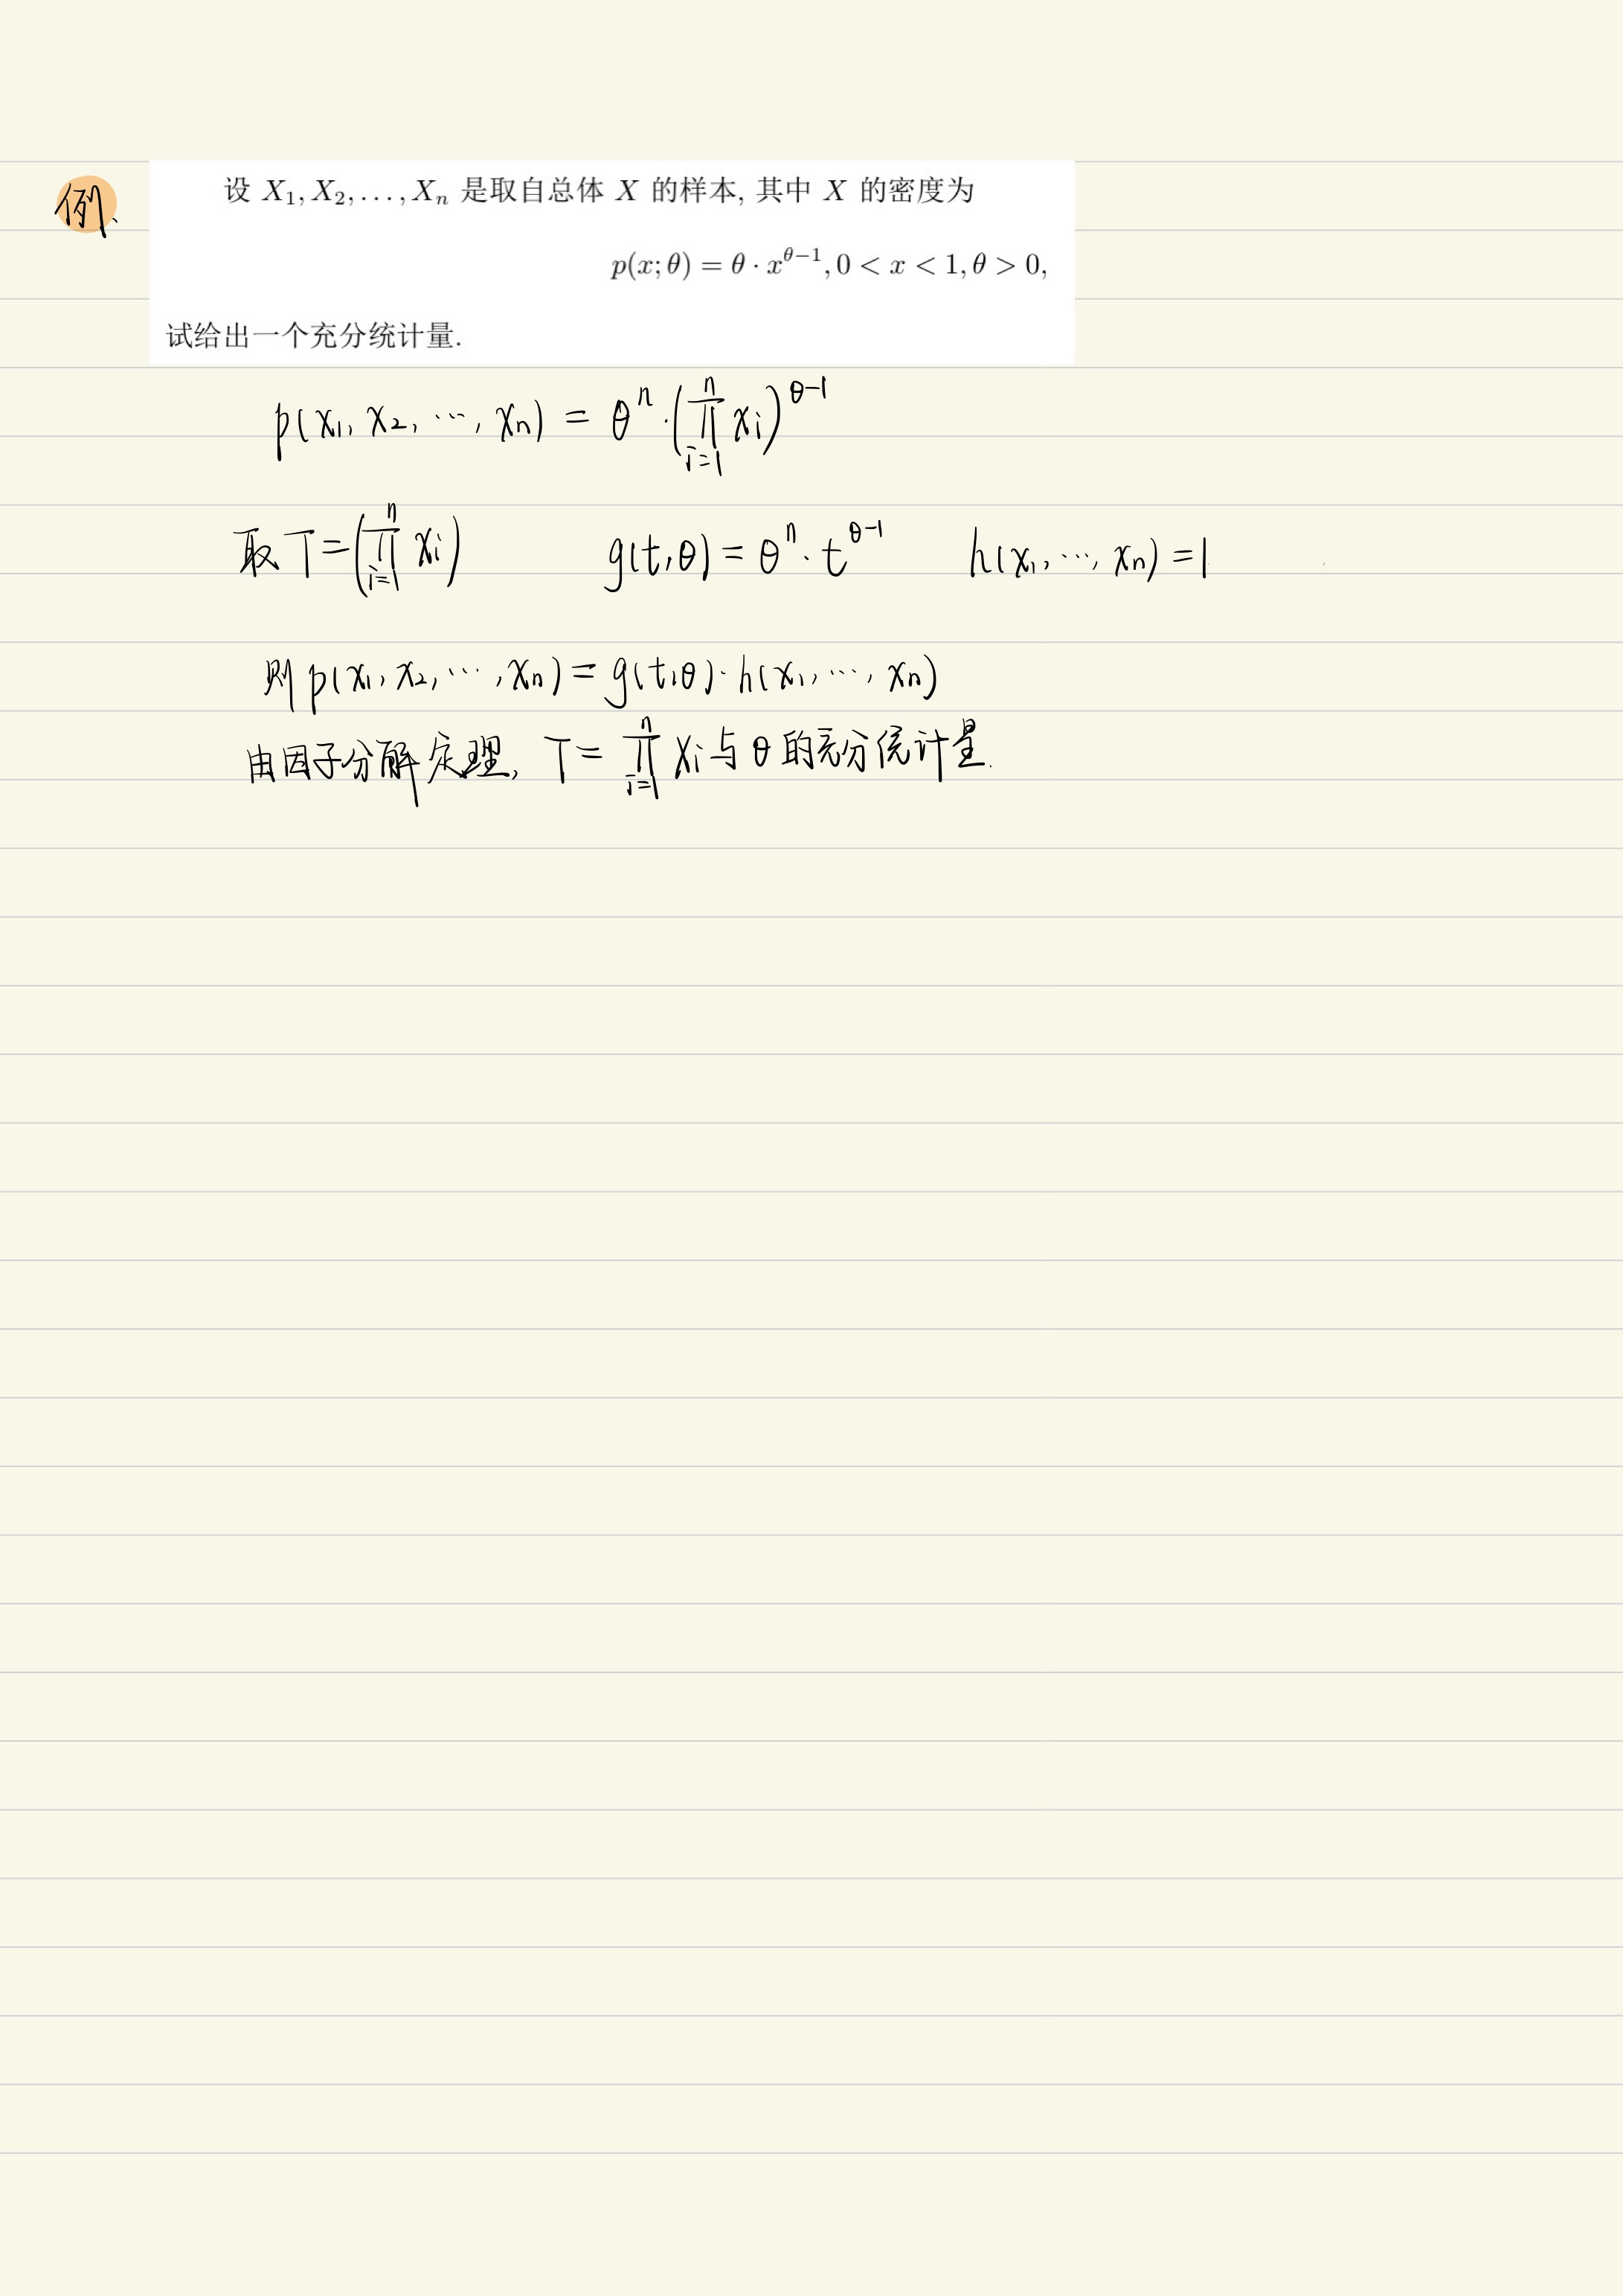 例、
设 X₁, X₂, . . . , Xₙ 是取自总体 X 的样本, 其中 X 的密度为
p(x; θ) = θ · x^{θ−1}, 0 < x < 1, θ > 0,
试给出一个充分统计量.
p(x₁, x₂, ⋯, xₙ) = θⁿ · (∏_{i=1}^{n} xᵢ)^{θ−1}
取 T = (∏_{i=1}^{n} xᵢ) g(t, θ) = θⁿ · t^{θ−1} h(x₁, ⋯, xₙ) = 1
则 p(x₁, x₂, ⋯, xₙ) = g(t, θ) · h(x₁, ⋯, xₙ)
由因子分解定理, T = ∏_{i=1}^{n} xᵢ 与 θ 的充分统计量.